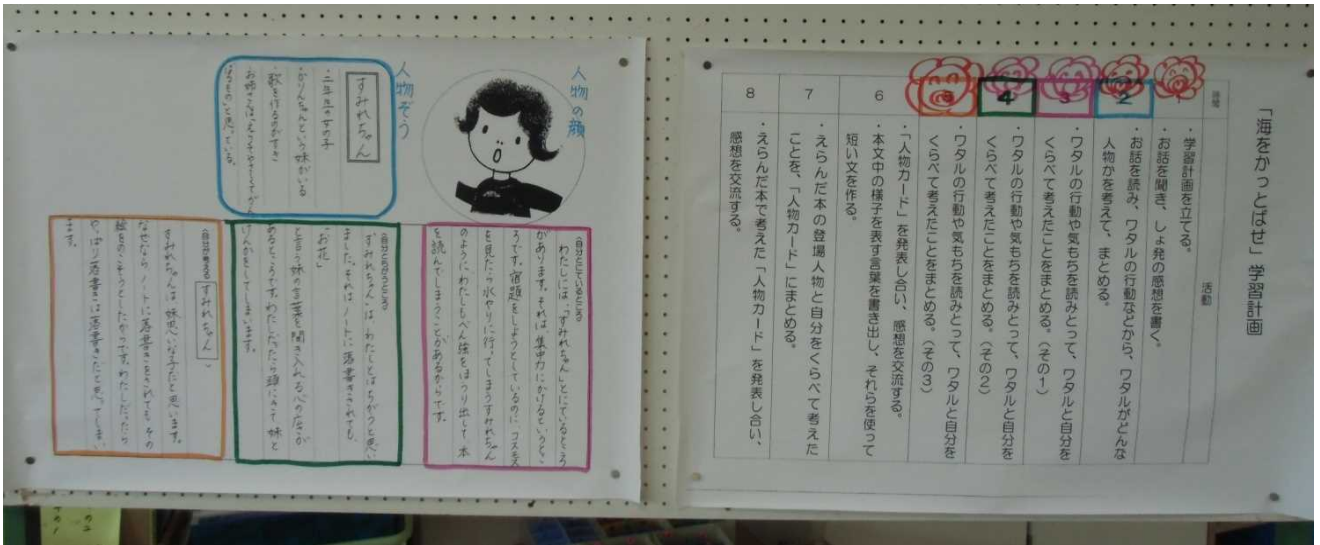 「海をかっとばせ」学習計画
時間
活動
・学習計画を立てる。
・お話を聞き、しょ発の感想を書く。
2
・お話を読み、ワタルの行動などから、ワタルがどんな
人物かを考えて、まとめる。
3
・ワタルの行動や気もちを読みとって、ワタルと自分を
くらべて考えたことをまとめる。(その1)
4
・ワタルの行動や気もちを読みとって、ワタルと自分を
くらべて考えたことをまとめる。(その2)
5
・ワタルの行動や気もちを読みとって、ワタルと自分を
くらべて考えたことをまとめる。(その3)
6
・「人物カード」を発表し合い、感想を交流する。
・本文中の様子を表す言葉を書き出し、それらを使って
短い文を作る。
7
・えらんだ本の登場人物と自分をくらべて考えた
ことを、「人物カード」にまとめる。
8
・えらんだ本で考えた「人物カード」を発表し合い、
感想を交流する。
人物の顔
人物ぞう
すみれちゃん
・二年生の女の子
・かりんちゃんという妹がいる
・歌を作るのがすき
(自分とにているところ)
わたしには、「すみれちゃん」とにているところ
があります。それは、集中力にかけるというとこ
ろです。宿題をしようとしているのに、コスモス
を見たら水やりに行ってしまうすみれちゃん
のようにわたしもべん強をほうり出して、本
を読んでしまうことがあるからです。
(自分とちがうところ)
すみれちゃんは、わたしとはちがうと思い
ました。それは、ノートに落書きされても、
「お花」
と言う妹の言葉を聞き入れる心の広さが
あるところです。わたしだったら頭にきて妹と
けんかをしてしまいます。
(自分が考える
すみれちゃん
)
すみれちゃんは妹思いな子だと思います。
なぜなら、ノートに落書きをされても、その
絵をのこそうとしたからです。わたしだったら
やっぱり落書きは落書きだと思ってしまい
ます。